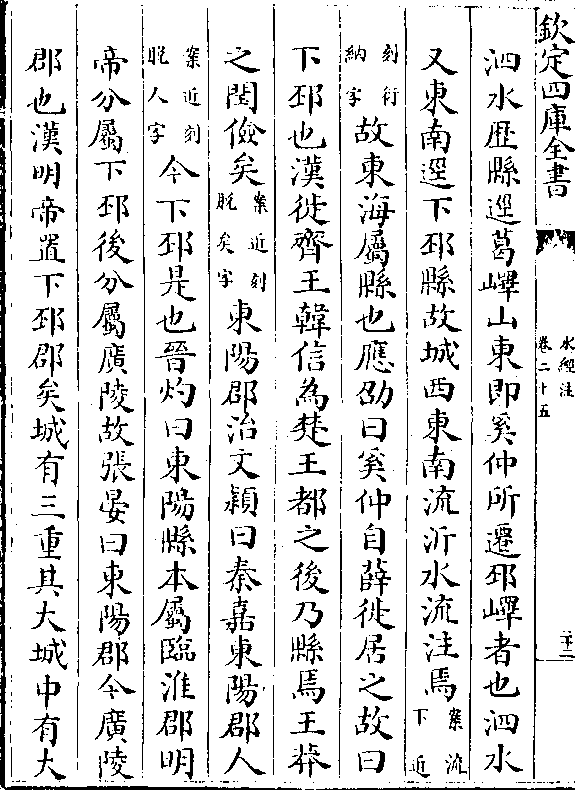 欽定四庫全書
水經注
卷二十五
二十二
泗水歷縣逕葛嶧山東即奚仲所遷邳嶧者也泗水
又東南逕下邳縣故城西東南流沂水流注焉案流下近
刻衍納字故東海屬縣也應劭曰奚仲自薛徙居之故曰
下邳也漢徙齊王韓信為楚王都之後乃縣焉王莽
之閏儉矣案近刻脫矣字東陽郡治文穎曰秦嘉東陽郡人
案近刻脫人字今下邳是也晉灼曰東陽縣本屬臨淮郡明
帝分屬下邳後分屬廣陵故張晏曰東陽郡今廣陵
郡也漢明帝置下邳郡矣城有三重其大城中有大